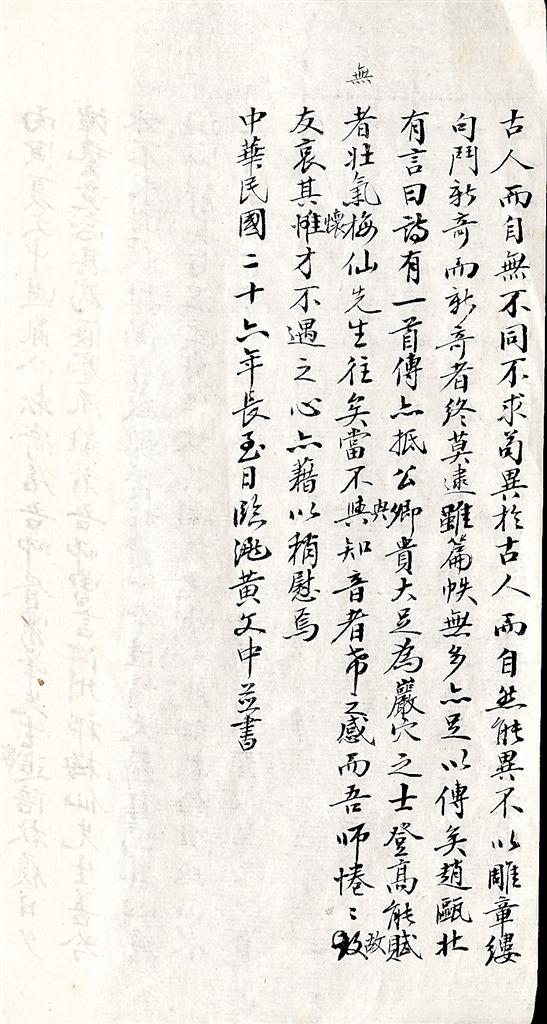 無
古人而自無不同不求苟異於古人而自然能異不以雕章縷
句鬥新奇而新奇者終莫逮雖篇帙無多亦足以傳矣趙甌北
有言曰詩有一首傳亦抵公卿貴大足為巖穴之士登高能賦
者壯氣梅仙先生往矣當不興與知音者希之感而吾師惓〻故
友哀其懷才不遇之心亦藉以稍慰焉
中華民國二十六年長至日臨洮黃文中並書